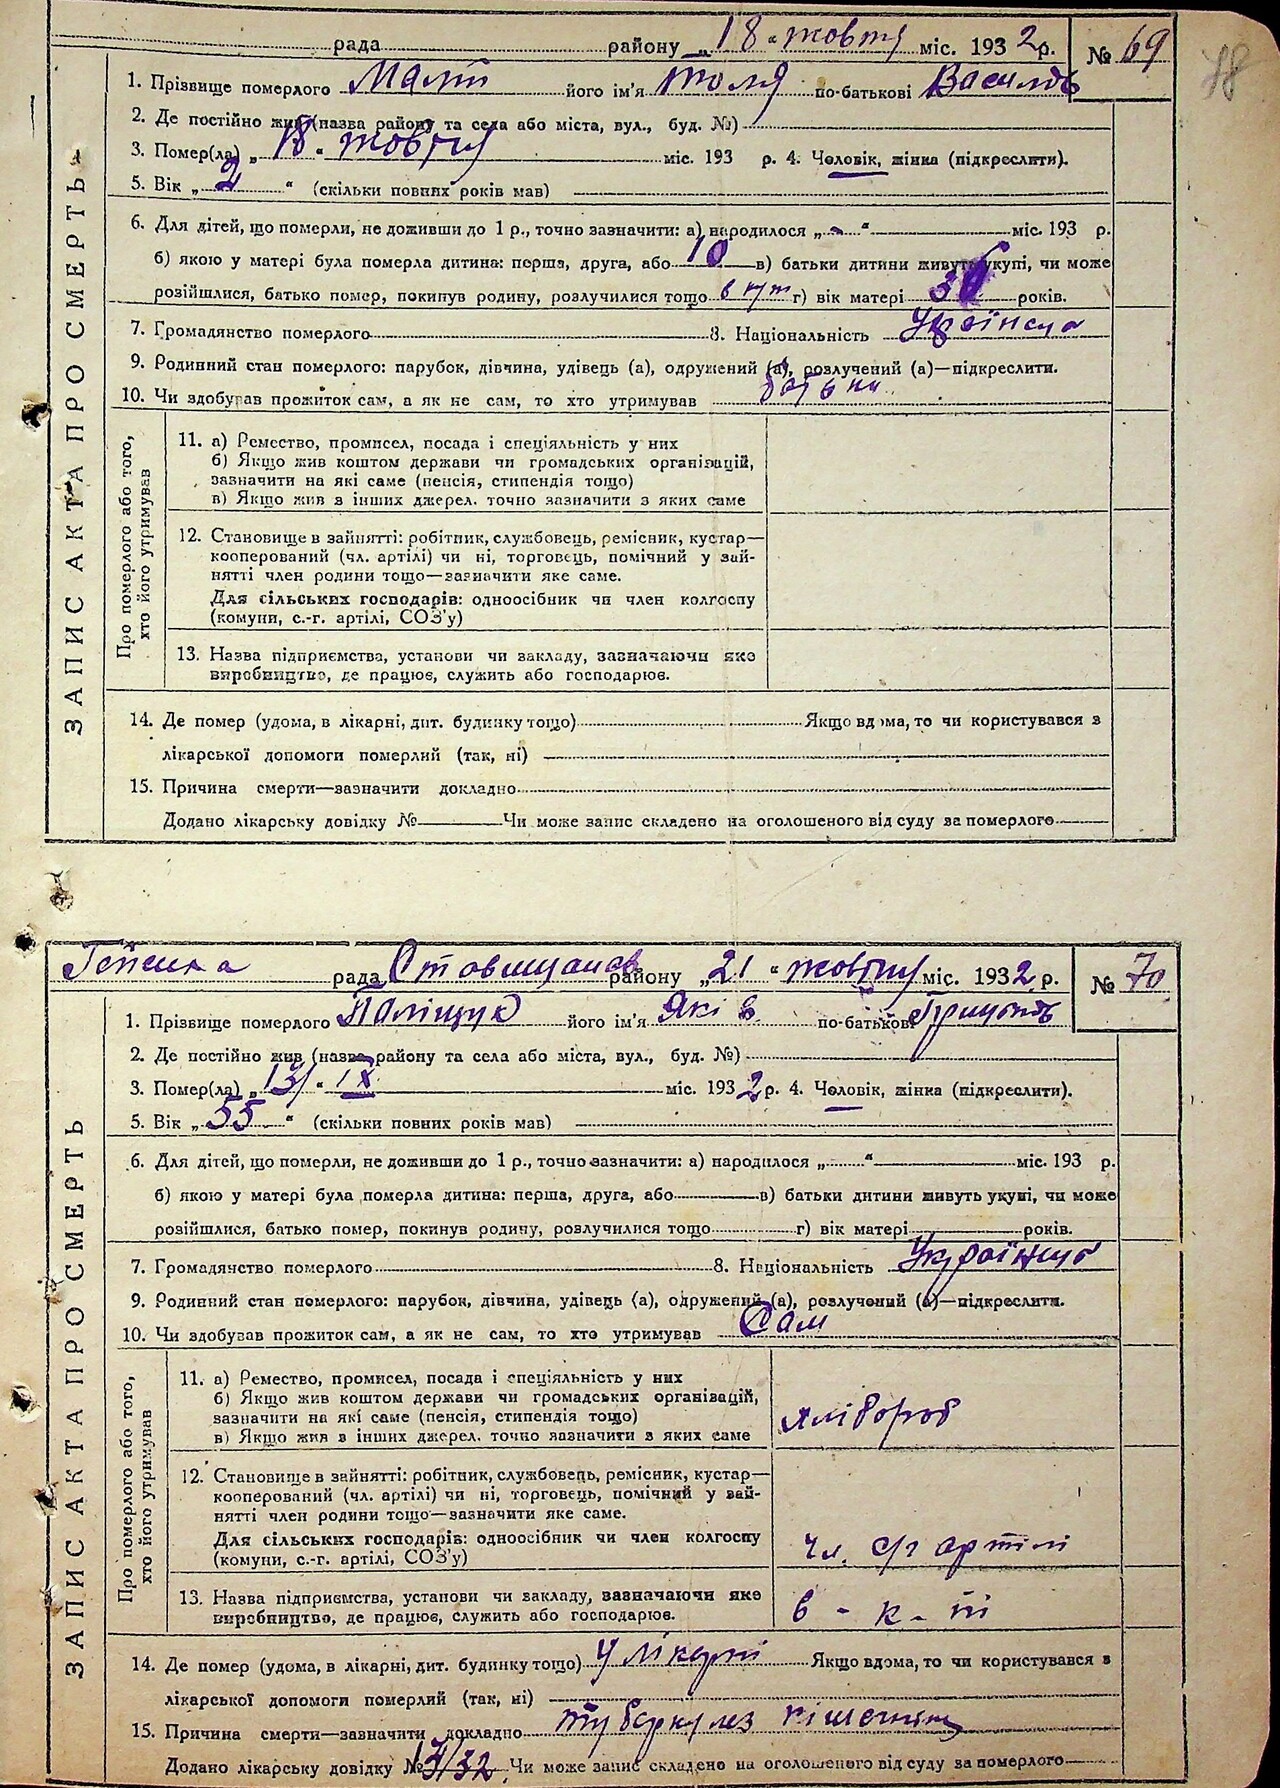 рада района „18“ жовтня міс. 1932 р. № 69
78
1. Прізвище померлого його ім'я Толя по-батькові
2. Де постійно жив (назва району та села або міста, вул., буд. №)
3. Помер(ла) „18“ жовтня міс. 193 р. 4. Человік, жінка (підкреслити).
5. Вік „2“ (скільки повних років мав)
6. Для дітей, що померли, не доживши до 1 р., точно зазначити: а) народилося „-“ міс. 193 р.
б) якою у матері була померла дитина: перша, друга, або 10 в) батьки дитини живуть укупі, чи може
розійшлися, батько помер, покинув родину, розлучилися тощо г) вік матері років.
7. Громадянство померлого 8. Національність
9. Родинний стан померлого: парубок, дівчина, удівець (а), одружений (а), розлучений (а)—підкреслити.
10. Чи здобував прожиток сам, а як не сам, то хто утримував батьки
ЗАПИС АКТА ПРО СМЕРТЬ
Про померлого або того, хто його утримував
11. а) Ремество, промисел, посада і спеціяльність у них
б) Якщо жив коштом держави чи громадських організацій,
зазначити на які саме (пенсія, стипендія тощо)
в) Якщо жив з інших джерел. точно зазначити з яких саме
12. Становище в зайнятті: робітник, службовець, ремісник, кустар—
кооперований (чл. артілі) чи ні, торговець, помічний у зай-
нятті член родини тощо—зазначити яке саме.
Для сільських господарів: одноосібник чи член колгоспу
(комуни, с.-г. артілі, СОЗ'у)
13. Назва підприємства, установи чи закладу, зазначаючи яке
виробництво, де працює, служить або господарює.
14. Де помер (удома, в лікарні, дит. будинку тощо) Якщо вдома, то чи користувався з
лікарської допомоги померлий (так, ні)
15. Причина смерти—зазначити докладно
Додано лікарську довідку № Чи може запис складено на оголошеного від суду за померлого
рада району „21“ жовтня міс. 1932 р. № 70
1. Прізвище померлого Паліщук його ім'я Які в по-батькові
2. Де постійно жив (назва району та села або міста, вул., буд. №)
3. Помер(ла) „13“ IX міс. 1932 р. 4. Человік, жінка (підкреслити).
5. Вік „55“ (скільки повних років мав)
6. Для дітей, що померли, не доживши до 1 р., точно зазначити: а) народилося „ “ міс. 193 р.
б) якою у матері була померла дитина: перша, друга, або в) батьки дитини живуть укупі, чи може
розійшлися, батько помер, покинув родину, розлучилися тощо г) вік матері років.
7. Громадянство померлого 8. Національність
9. Родинний стан померлого: парубок, дівчина, удівець (а), одружений (а), розлучений (а)—підкреслити.
10. Чи здобував прожиток сам, а як не сам, то хто утримував Сам
ЗАПИС АКТА ПРО СМЕРТЬ
Про померлого або того, хто його утримував
11. а) Ремество, промисел, посада і спеціяльність у них
б) Якщо жив коштом держави чи громадських організацій,
зазначити на які саме (пенсія, стипендія тощо)
в) Якщо жив з інших джерел. точно зазначити з яких саме
хлібороб
12. Становище в зайнятті: робітник, службовець, ремісник, кустар—
кооперований (чл. артілі) чи ні, торговець, помічний у зай-
нятті член родини тощо—зазначити яке саме.
Для сільських господарів: одноосібник чи член колгоспу
(комуни, с.-г. артілі, СОЗ'у)
чл. с/г артілі
13. Назва підприємства, установи чи закладу, зазначаючи яке
виробництво, де працює, служить або господарює.
14. Де помер (удома, в лікарні, дит. будинку тощо) У лікарні Якщо вдома, то чи користувався з
лікарської допомоги померлий (так, ні)
15. Причина смерти—зазначити докладно туберкулез
Додано лікарську довідку № Чи може запис складено на оголошеного від суду за померлого